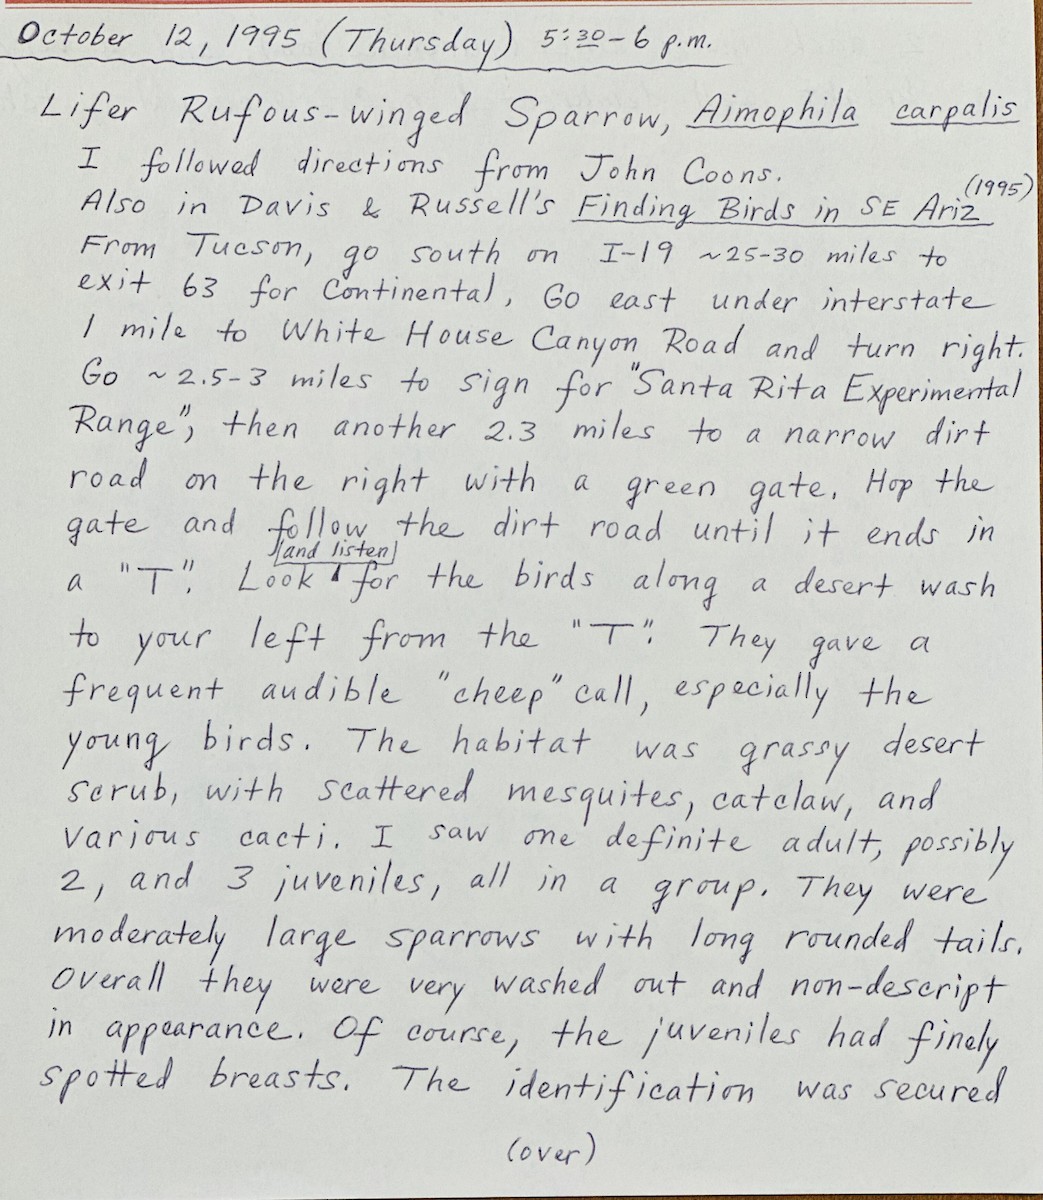 October 12, 1995 (Thursday) 5:30-6 p.m.
Lifer Rufous-winged Sparrow, Aimophila carpalis
I followed directions from John Coons.
(1995)
Also in Davis & Russell's Finding Birds in SE Ariz
From Tucson, go south on I-19 ~25-30 miles to
exit 63 for Continental, Go east under interstate
1 mile to White House Canyon Road and turn right.
Go ~2.5-3 miles to sign for "Santa Rita Experimental
Range", then another 2.3 miles to a narrow dirt
road on the right with a green gate. Hop the
gate and follow the dirt road until it ends in
and listen
a "T". Look for the birds along a desert wash
to your left from the "T". They gave a
frequent audible "cheep" call, especially the
young birds. The habitat was grassy desert
scrub, with scattered mesquites, catclaw, and
various cacti. I saw one definite adult, possibly
2, and 3 juveniles, all in a group. They were
moderately large sparrows with long rounded tails.
Overall they were very washed out and non-descript
in appearance. Of course, the juveniles had finely
spotted breasts. The identification was secured
(over)